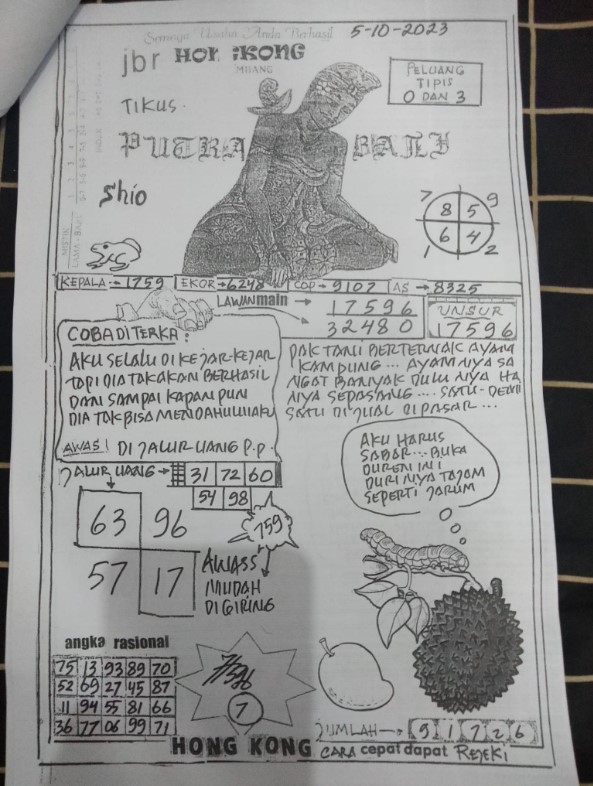 Semoga Usaha Anda Berhasil
5-10-2023
jbr HONGKONG
MALANG
PELUANG
TIPIS
0 DAN 3
TIKUS.
PUTRA BALI
Shio
7 9
8 5
6 4
1 2
KEPALA → 1759 EKOR → 6248 COP → 9107 AS → 8325
LAWAN main → 17596
32480
UNSUR
17596
COBA DITERKA :
AKU SELALU DI KEJAR-KEJAR
TAPI DIA TAK AKAN BERHASIL
DAN SAMPAI KAPAN PUN
DIA TAK BISA MENDAHULUI AKU
AWAS! DI JALUR UANG P.P.
PAK TANI BERTERNAK AYAM
KAMPUNG... AYAM NYA SA
NGAT BANYAK DULU NYA HA
NYA SEPASANG....
SATU DI JUAL DI PASAR...
JALUR UANG → 31 72 60
54 98
63 96
57 17
759
AWASS
MUDAH
DI GIRING
AKU HARUS
SABAR... BUKA
DUREN INI
DURI NYA TAJAM
SEPERTI JARUM
angka rasional
75 13 93 89 70
52 69 27 45 87
11 94 55 81 66
36 77 06 99 71
7
JUMLAH → 5 1 7 2 6
HONG KONG CARA cepat dapat REJEKI